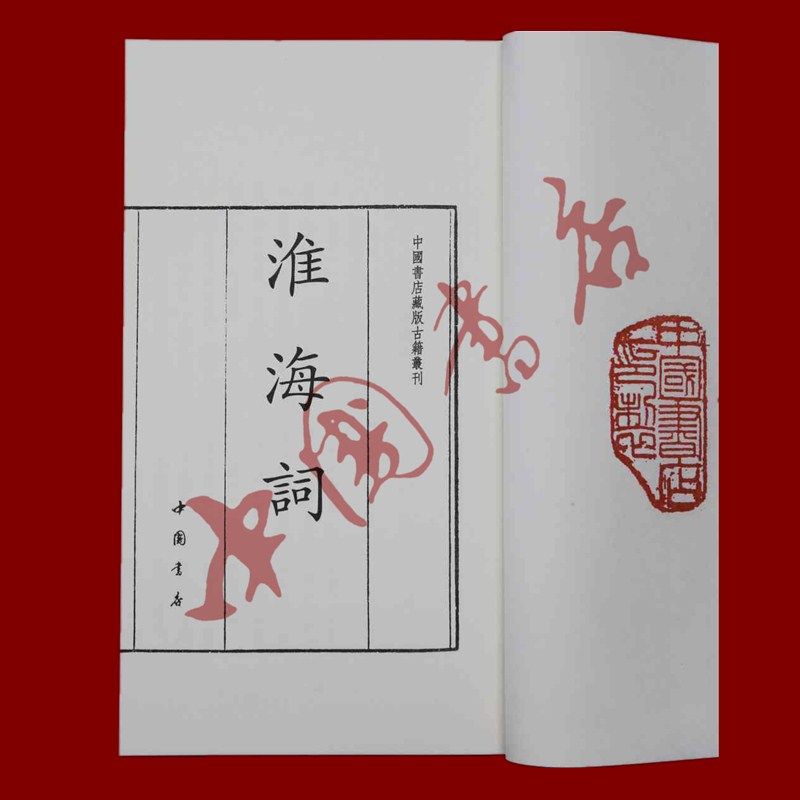 中國書店藏版古籍叢刊
淮海詞
中國書店
中國書店
中國書店印製